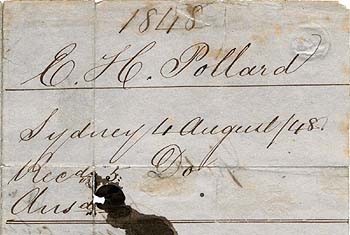 1848
E. H. Pollard
Sydney 4 August/48.
Recd. Do
Ansd